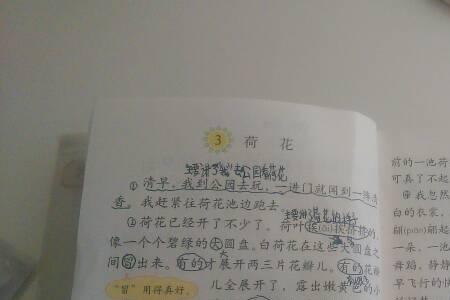 3 荷花
①清早，我到公园去玩，一进门就闻到一阵清
香。我赶紧往荷花池边跑去。
②荷花已经开了不少了。荷叶挨(āi)挨挤挤的，
像一个个碧绿的大圆盘。白荷花在这些大圆盘之
间冒出来。有的才展开两三片花瓣儿。有的花瓣
儿全展开了，露出嫩黄色的小
“冒”用得真好。
前的一池荷
可真了不起
④我忽然
白的衣裳，
翩(piān)翩起
一朵，一池
舞蹈，静静
早飞行的快